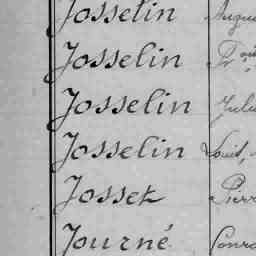 Josselin
Josselin
Josselin Jule
Josselin Louis,
Josset Pierr
Journé Conra